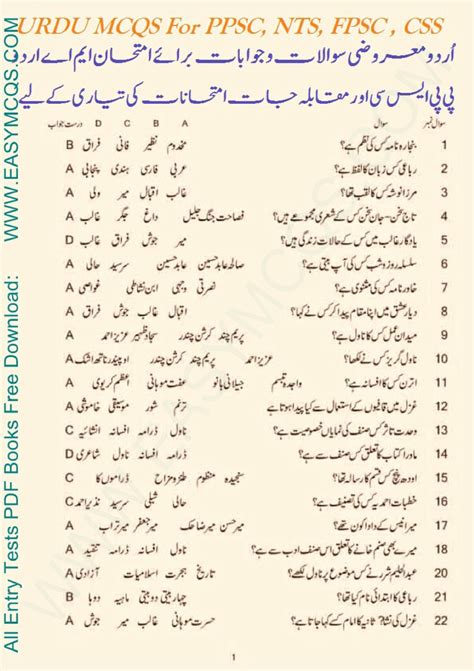 URDU MCQS For PPSC, NTS, FPSC , CSS
اُردو معروضی سوالات و جوابات برائے امتحان ایم اے اردو
پی پی ایس سی اور مقابلہ جات امتحانات کی تیاری کے لیے
سوال نمبر سوال A B C D درست جواب
1 بنجارہ نامہ کس کی نظم ہے؟ مخدوم نظیر فانی فراق B
2 رباعی کس زبان کا لفظ ہے؟ عربی فارسی ہندی پنجابی A
3 مرزا نوشہ کس کا لقب تھا؟ غالب اقبال میر ولی A
4 تاج سخن-جان سخن کس کے شعری مجموعے ہیں؟ فصاحت جنگ جلیل داغ جگر غالب A
5 یادگار غالب میں کس کے حالات زندگی ہیں؟ میر جوش فراق غالب D
6 سلسلہ روز وشب کس کی آپ بیتی ہے؟ صالحہ عابد حسین عابد حسین سرسید حالی A
7 خاور نامہ کس کی مثنوی ہے؟ نصرتی وجہی ابن نشاطی غواصی
8 دیار عشق میں اپنا مقام پیدا کر کس نے کہا؟ اقبال غالب جوش فراق A
9 میدان عمل کس کا ناول ہے؟ پریم چند کرشن چندر سجاد ظہیر عزیز احمد A
10 ناول گریز کس نے لکھا؟ عزیز احمد پریم چند کرشن چندر اوپیندر ناتھ اشک A
11 اترن کس کا افسانہ ہے؟ واجدہ تبسم جیلانی بانو عصمت موہانی اعظم کریوی A
12 غزل میں قافیوں کے استعمال سے کیا پیدا ہوتا ہے ترنم شور موسیقی خاموشی A
13 وحدت تاثر کس صنف کی خصوصیت ہے؟ ناول ڈرامہ افسانہ انشائیہ C
14 ماورا کتاب کا تعلق کس صنف سے ہے؟ ڈرامہ افسانہ ناول شاعری D
15 اودھ پنچ کس قسم کا رسالہ تھا؟ سنجیدہ مزاح طنز و مزاح ڈراموں کا C
16 خطبات احمدیہ کس کی تصنیف ہے؟ حالی شبلی سرسید نذیر احمد C
17 میر انیس کے دادا کون تھے؟ میر حسن میر ضاحک میر جعفر میر تراب A
18 میرے بھی صنم خانے کا تعلق کس صنف سے ہے؟ ناول افسانہ ڈرامہ تنقید A
19 عبدالحلیم شرر نے کس موضوع پر ناول لکھے؟ تاریخ ہجرت اسلامیات آزادی A
20 رباعی کا ابتدائی نام کیا تھا؟ چہار بیتی دو بیتی ماہیہ دوہا B
22 غزل کی نشاۃ ثانیہ کا امام کسے کہا جاتا ہے؟ حسرت موہانی غالب میر جوش A
1
All Entry Tests PDF Books Free Download: WWW.EASYMCQS.COM
WWW.EASYMCQS.COM